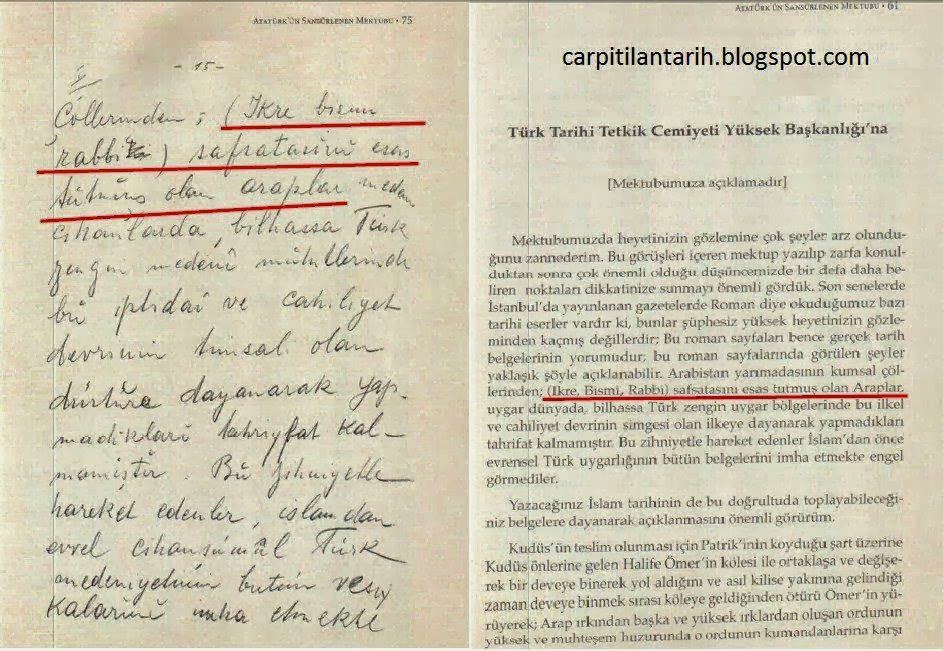 ATATÜRK'ÜN SANSÜRLENEN MEKTUBU • 75
- 15 -
Çöllerinden; (Ikre bismi
rabbi) safsatasini esas
tutmuş olan araplar meden
cihanlarda, bilhassa Türk
zengin medeni
bu iptidaî ve cahiliyet
devrinin timsali olan
düstüra dayanarak yap-
madiklari tahrifat kal-
mamiştir. Bu zihniyetle
hareket edenler, islamdan
evvel cihanşümûl Türk
medeniyetinin bütün vesi
kalarini imha etmekte
ATATÜRK'ÜN SANSÜRLENEN MEKTUBU • 61
carpitilantarih.blogspot.com
Türk Tarihi Tetkik Cemiyeti Yüksek Başkanlığı'na
[Mektubumuza açıklamadır]
Mektubumuzda heyetinizin gözlemine çok şeyler arz olundu-
ğunu zannederim. Bu görüşleri içeren mektup yazılıp zarfa konul-
duktan sonra çok önemli olduğu düşüncemizde bir defa daha be-
liren noktaları dikkatinize sunmayı önemli gördük. Son senelerde
İstanbul'da yayınlanan gazetelerde Roman diye okuduğumuz bazı
tarihi eserler vardır ki, bunlar şüphesiz yüksek heyetinizin gözle-
minden kaçmış değillerdir; Bu roman sayfaları bence gerçek tarih
belgelerinin yorumudur; bu roman sayfalarında görülen şeyler
yaklaşık şöyle açıklanabilir. Arabistan yarımadasının kumsal çöl-
lerinden; (Ikre, Bismi, Rabbi) safsatasını esas tutmuş olan Araplar,
uygar dünyada, bilhassa Türk zengin uygar bölgelerinde bu ilkel
ve cahiliyet devrinin simgesi olan ilkeye dayanarak yapmadıkları
tahrifat kalmamıştır. Bu zihniyetle hareket edenler İslam'dan önce
evrensel Türk uygarlığının bütün belgelerini imha etmekte engel
görmediler.
Yazacağınız İslam tarihinin de bu doğrultuda toplayabileceği-
niz belgelere dayanarak açıklanmasını önemli görürüm.
Kudüs'ün teslim olunması için Patrik'inin koyduğu şart üzerine
Kudüs önlerine gelen Halife Ömer'in kölesi ile ortaklaşa ve değişe-
rek bir deveye binerek yol aldığını ve asıl kilise yakınına gelindiği
zaman deveye binmek sırası köleye geldiğinden ötürü Ömer'in yü-
rüyerek; Arap ırkından başka ve yüksek ırklardan oluşan ordunun
yüksek ve muhteşem huzurunda o ordunun kumandanlarına karşı